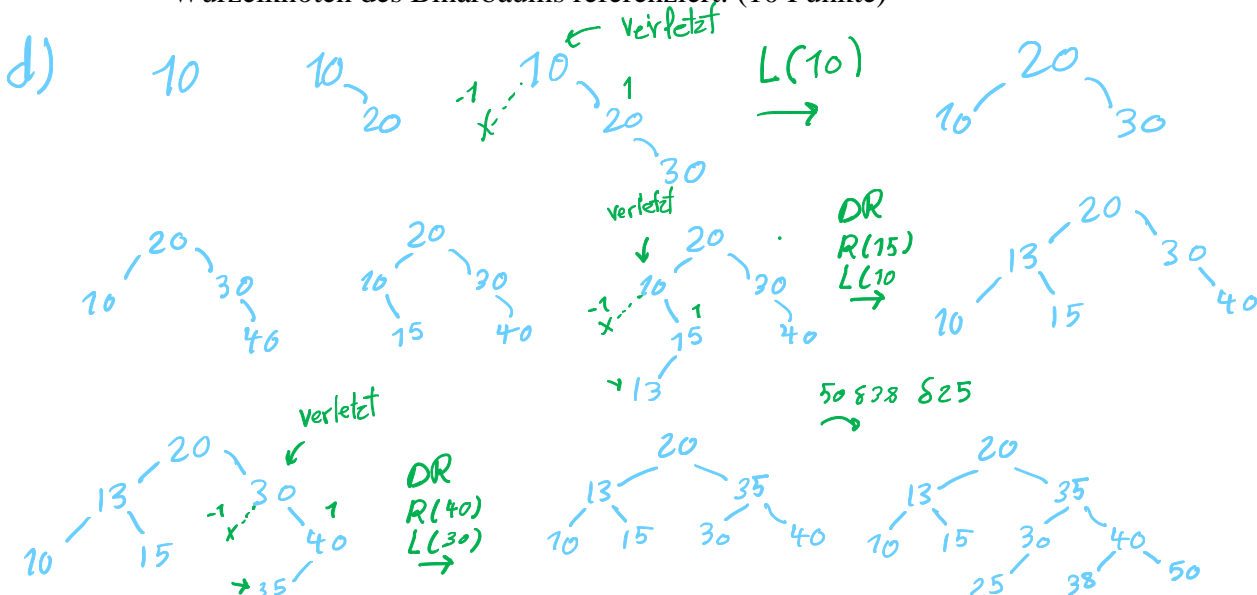 Wurzelknoten des Binärbaums referenziert. (10 Punkte)
d) 10 10 20 -1 x 10 verletzt 1 20 30 L(10) 20 10 30
20 10 30 40
20 10 30 15 40
verletzt 20 10 30 -1 x 1 15 40 13
DR
R(15)
L(10
20 13 30 10 15 40
verletzt
20
13 30
-1 x 1
10 15 40
35
DR
R(40)
L(30)
20
13 35
10 15 30 40
50 & 38 & 25
20
13 35
10 15 30 40
25 38 50